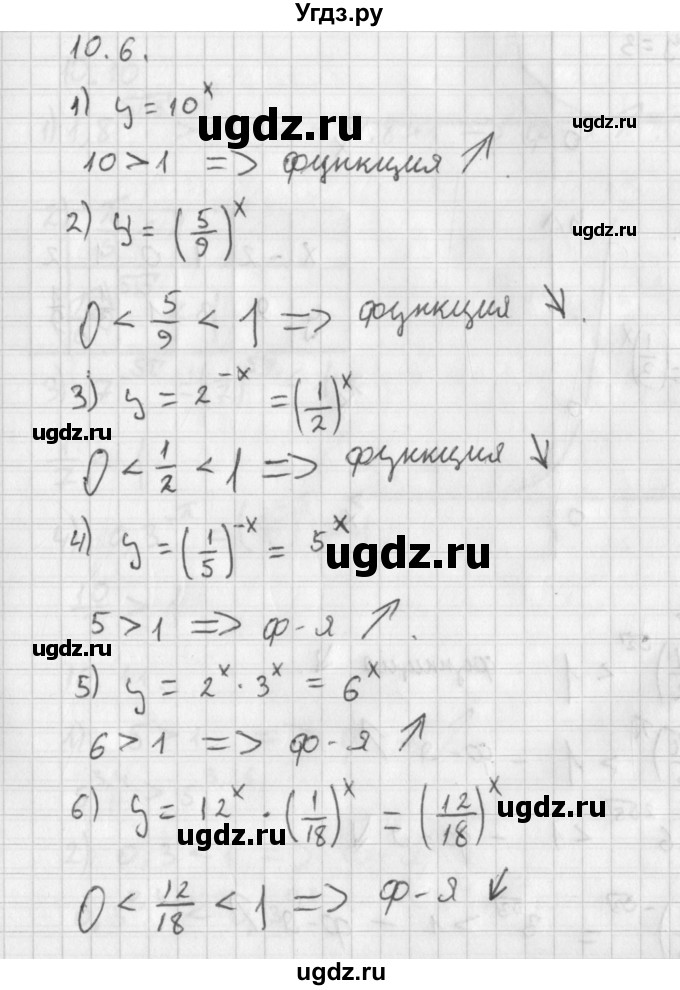 Угдз.ру
10.6.
1) y = 10^x
ugdz.ru
ugdz.ru
10 > 1 => функция ↑.
2) y = (5/9)^x
ugdz.ru
0 < 5/9 < 1 => функция ↓.
3) y = 2^-x = (1/2)^x
ugdz.ru
0 < 1/2 < 1 => функция ↓
4) y = (1/5)^-x = 5^x
ugdz.ru
ugdz.ru
5 > 1 => ф-я ↑.
ugdz.ru
5) y = 2^x · 3^x = 6^x
6 > 1 => ф-я ↑
6) y = 12^x · (1/18)^x = (12/18)^x
ugdz.ru
ugdz.ru
0 < 12/18 < 1 => ф-я ↓
ugdz.ru